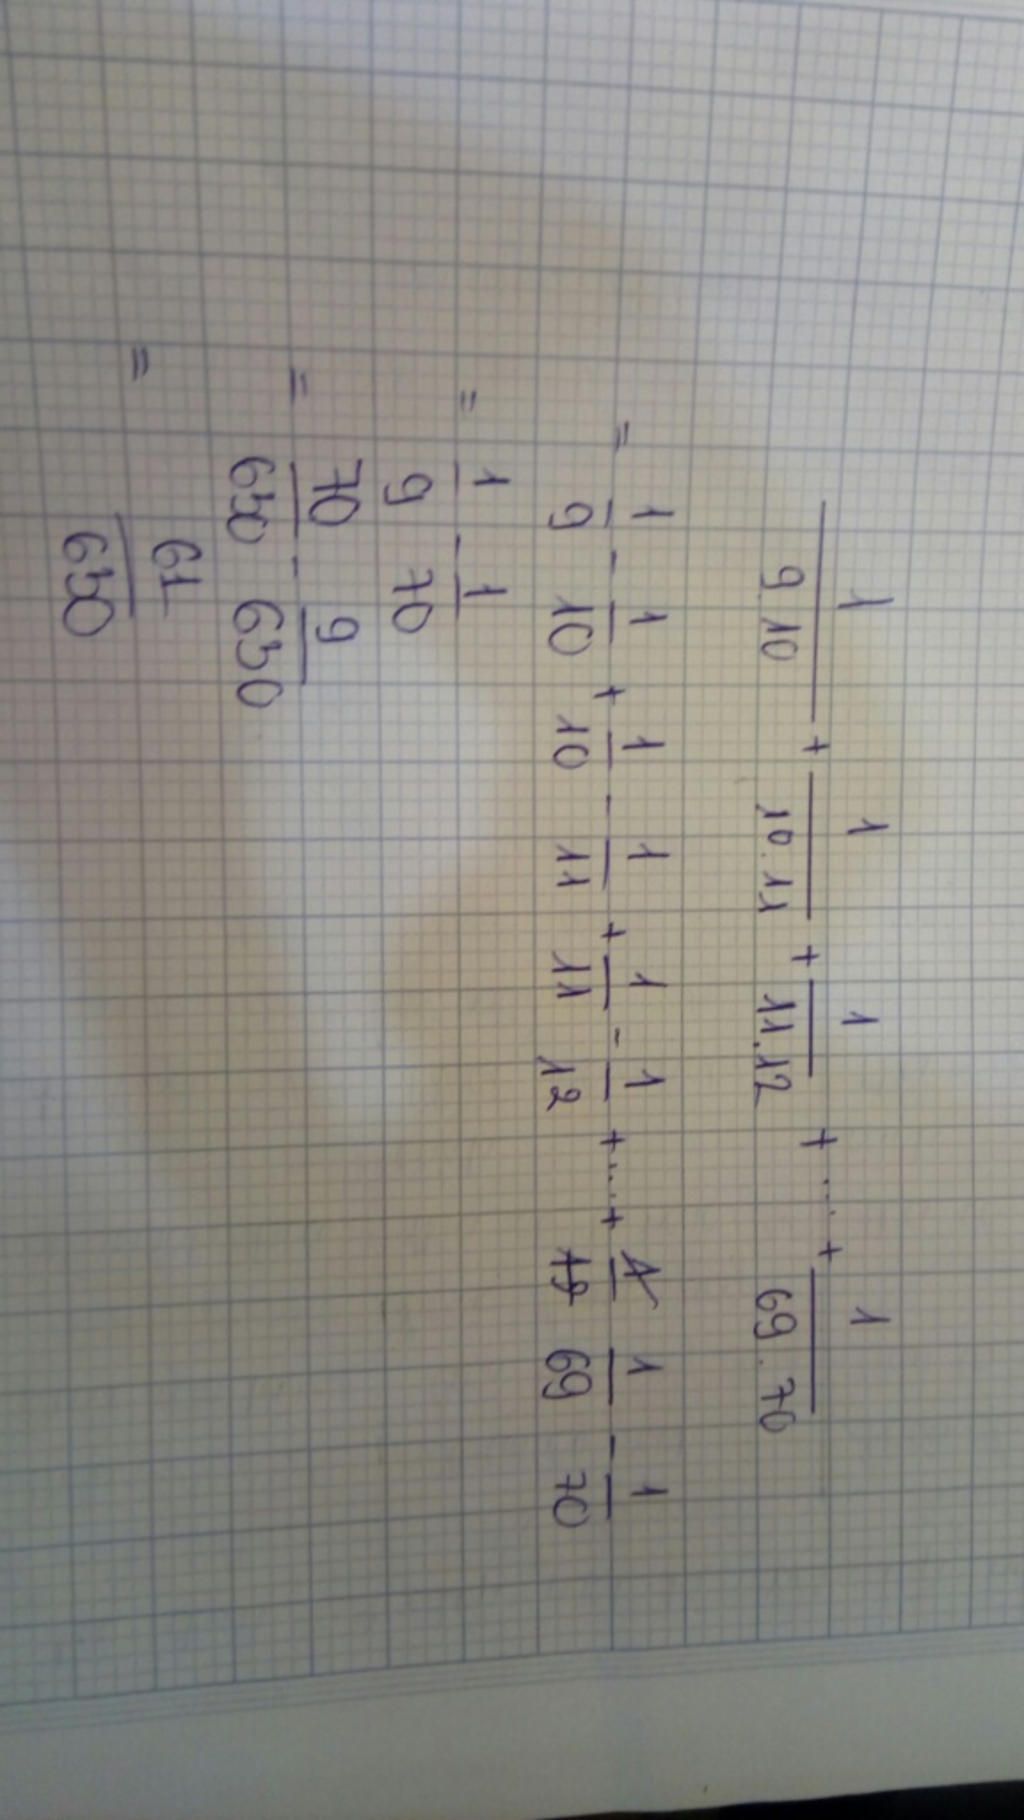 1/(9.10) + 1/(10.11) + 1/(11.12) + ... + 1/(69.70)
= 1/9 - 1/10 + 1/10 - 1/11 + 1/11 - 1/12 + ... + 1/69 - 1/70
= 1/9 - 1/70
= 70/630 - 9/630
= 61/630